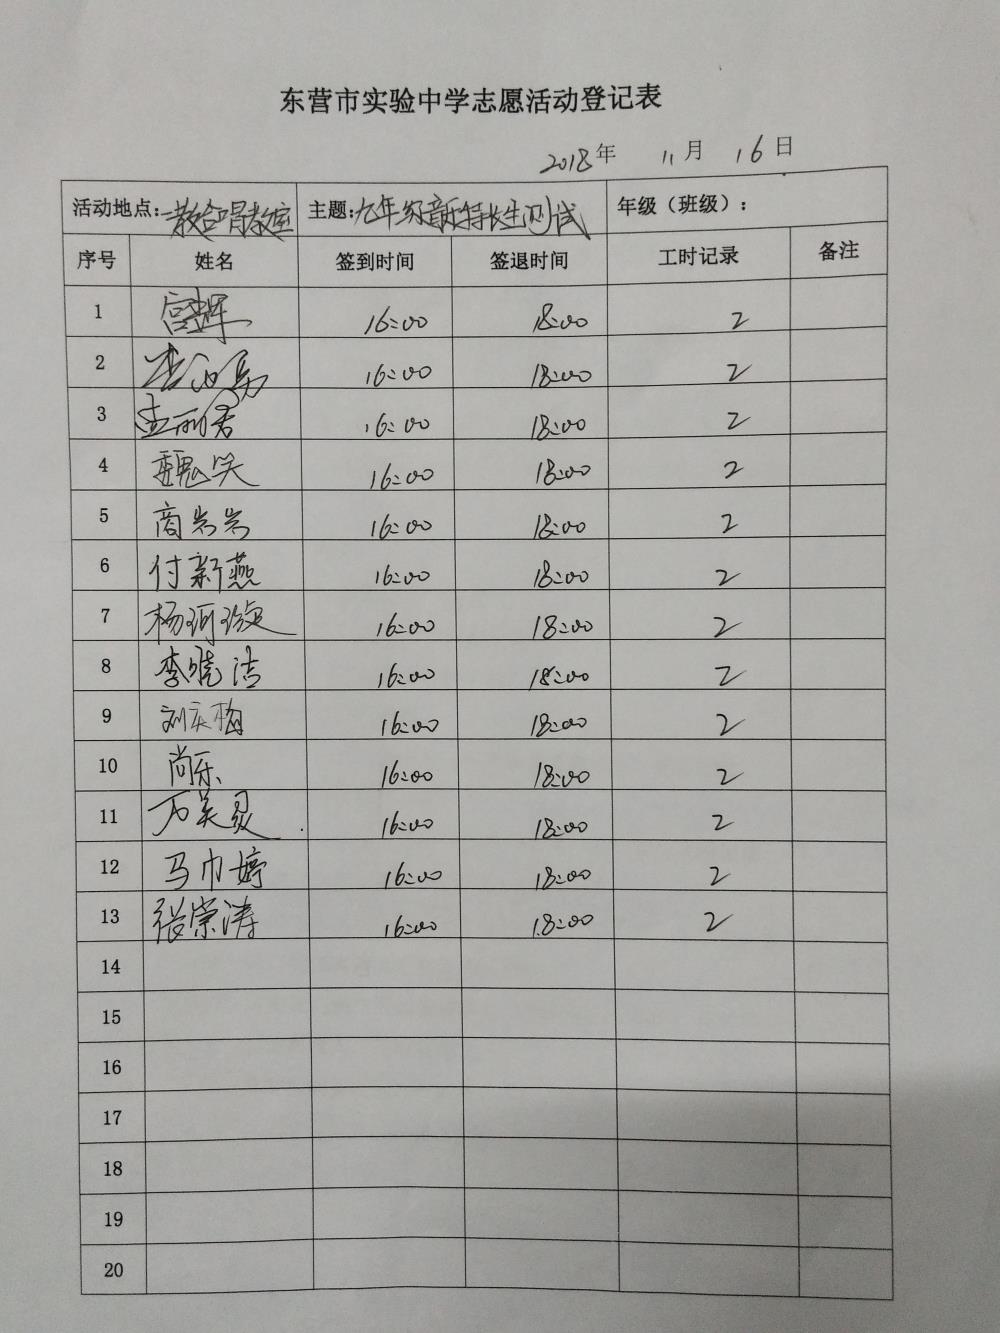 东营市实验中学志愿活动登记表
2018年 11月 16日
活动地点:一教合唱教室 主题:九年级音乐特长生测试 年级（班级）:
序号 姓名 签到时间 签退时间 工时记录 备注
1 16:00 18:00 2
2 16:00 18:00 2
3 孟丽君 16:00 18:00 2
4 魏笑 16:00 18:00 2
5 商岩岩 16:00 18:00 2
6 付新燕 16:00 18:00 2
7 杨珂璇 16:00 18:00 2
8 李晓洁 16:00 18:00 2
9 刘庆梅 16:00 18:00 2
10 尚乐 16:00 18:00 2
11 万美灵 16:00 18:00 2
12 马巾婷 16:00 18:00 2
13 张崇涛 16:00 18:00 2
14
15
16
17
18
19
20